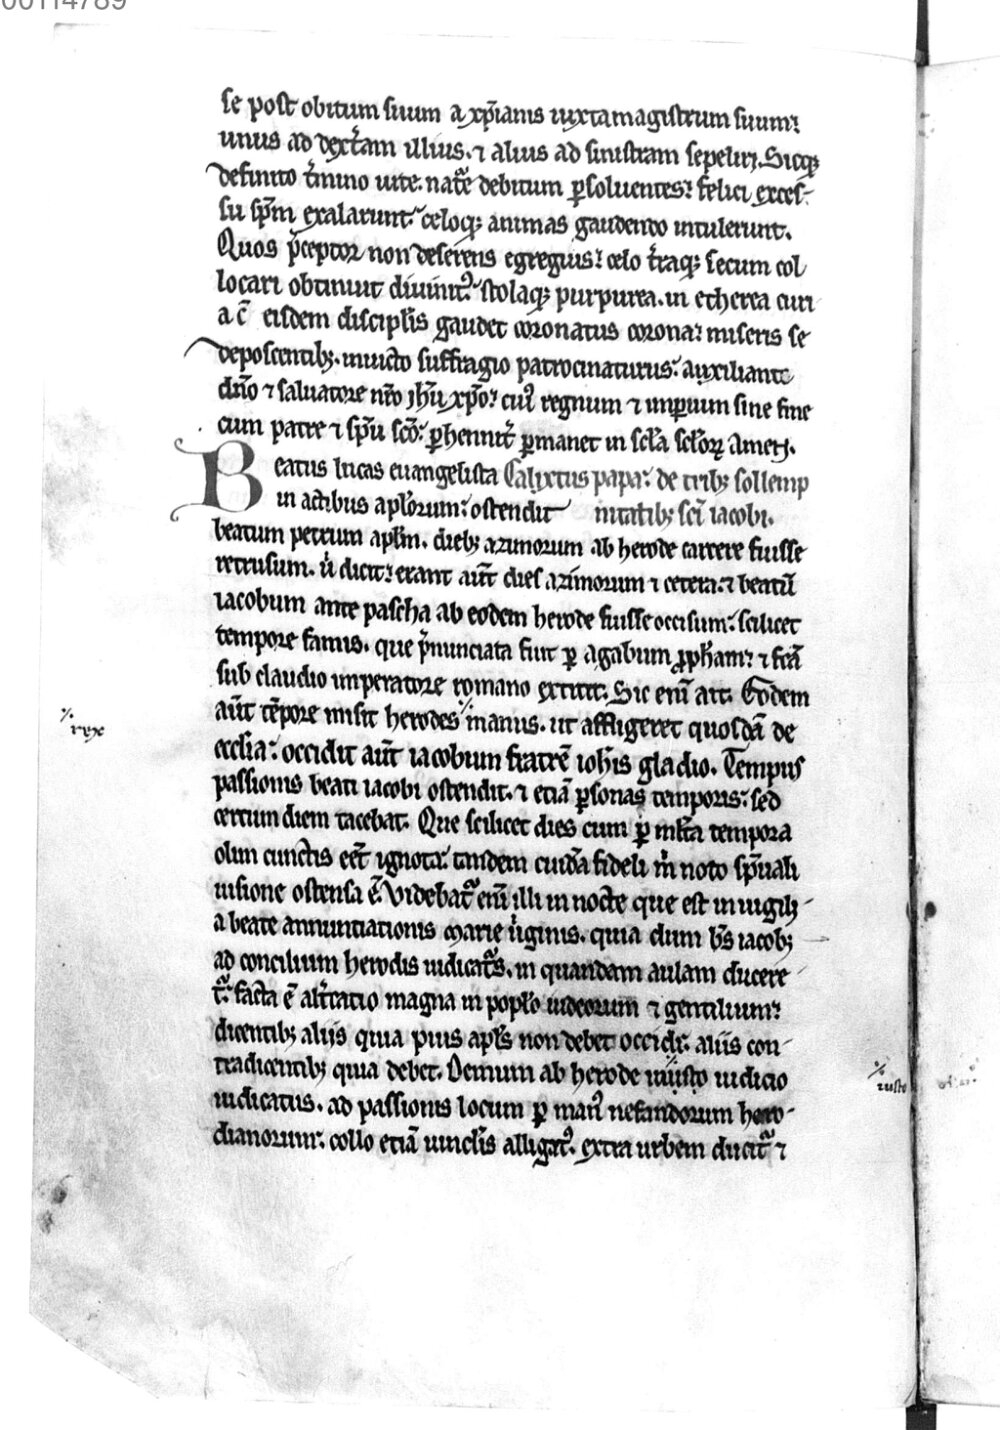 00114789
se post obitum suum a xp̃ianis iuxta magistrum suum:
unus ad dext̃am illius. ⁊ alius ad sinistram sepeliri. Sicqꝫ
definito t̃mino uite. nat̃e debitum ꝑsoluentes: felici exces-
su sp̃m exalarunt: celoqꝫ animas gaudendo intulerunt.
Quos p̃ceptor non deserens egregius: celo t̃raqꝫ secum col
locari obtinuit diuinitꝰ: stolaqꝫ purpurea. in etherea curi
a c̃ eisdem discipl̃is gaudet coronatus corona: miseris se
deposcentibꝫ. inuicto suffragio patrocinaturus: auxiliante
dño ⁊ saluatore nr̃o jhũ xp̃o: cuiꝰ regnum ⁊ imꝑium sine fine
cum patre ⁊ sp̃u sc̃o: ꝑhennit̃ ꝑmanet in scl̃a scl̃oꝝ Amen.
Beatus lucas euangelista Calixtus papa: de tribꝫ sollemp
in actibus apl̃orum: ostendit nitatibꝫ sc̃i iacobi.
beatum petrum apl̃m. diebꝫ azimorum ab herode carcere fuisse
retrusum. u̇ dicit: erant aut̃ dies azimorum ⁊ cetera. ⁊ beatũ
iacobum ante pascha ab eodem herode fuisse occisum: scilicet
tempore famis. que p̃nunciata fuit ꝑ agabum ꝓph̃am: ⁊ fc̃a
sub claudio imperatore romano extitit. Sic enĩ ait. Eodem
aut̃ tẽpore misit herodes ⁒ manus. ut affligeret quosdã de
eccl̃ia: occidit aut̃ iacobum fratrẽ ioh̃is gladio. Tempus
⁒
rex
passionis beati iacobi ostendit. ⁊ etiã ꝑsonas temporis: sed
certum diem tacebat. Que scilicet dies cum ꝑ ml̃ta tempora
olim cunctis eẽt ignota: tandem cuidã fideli m̃ noto sp̃uali
uisione ostensa ẽ. Videbat̃ enĩ illi in nocte que est in uigilꝫ-
a beate annuntiationis Marie u̇ginis. quia dum b̃s iacobꝫ
ad concilium herodis iudicat̃s. in quandam aulam ducere-
t̃: facta ẽ alt̃catio magna in popl̃o iudeorum ⁊ gentilium:
dicentibꝫ aliis quia pius apl̃s non debet occidi: aliis con-
tradicentibꝫ quia debet. Demum ab herode ⁒ iniusto iudicio
⁒
iusto
iudicatus. ad passionis locum ꝑ manꝰ nefandorum hero-
dianorum: collo etiã uinclis alligatꝰ. extra urbem ducit̃ ⁊